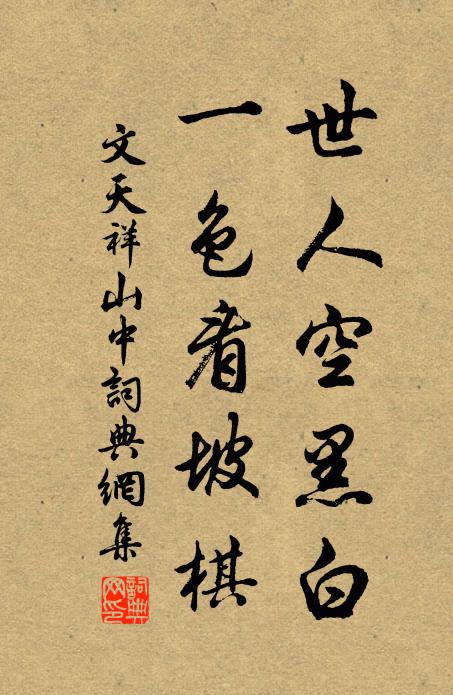 世人空黑白
一色看坡棋
文天祥山中詞典網集
詞典網印